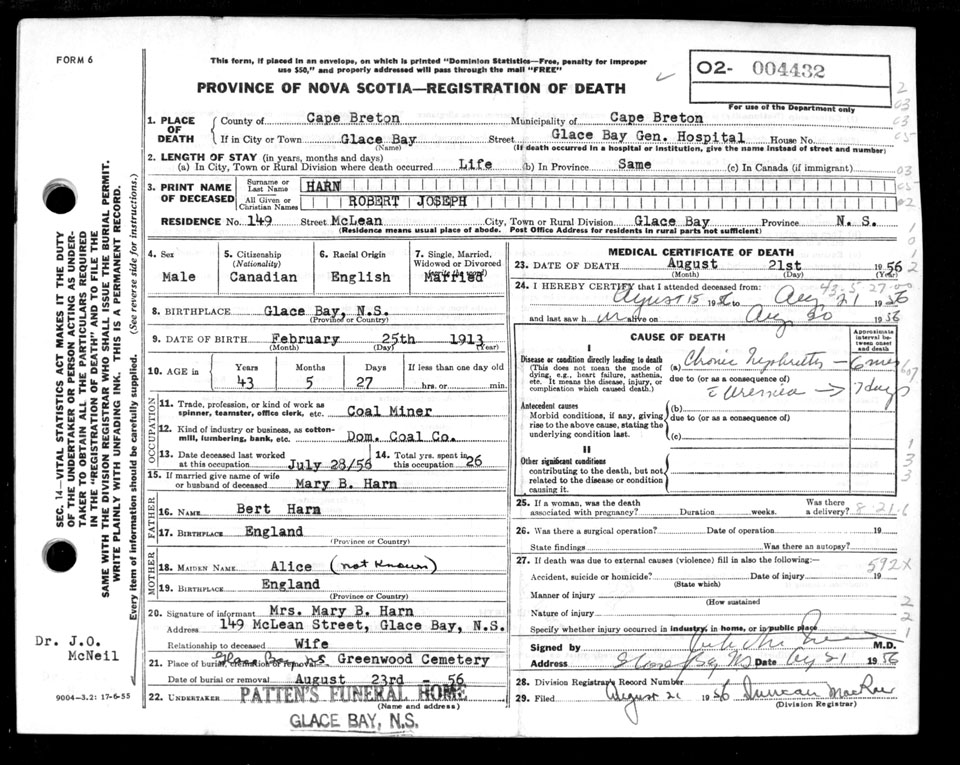 FORM 6
This form, if placed in an envelope, on which is printed "Dominion Statistics—Free, penalty for improper
use $50," and properly addressed will pass through the mail "FREE"
PROVINCE OF NOVA SCOTIA—REGISTRATION OF DEATH
O2- 004432
For use of the Department only
1. PLACE OF DEATH { County of Cape Breton Municipality of Cape Breton
If in City or Town Glace Bay Street Glace Bay Gen. Hospital House No.
(Name) (If death occurred in a hospital or institution, give the name instead of street and number)
2. LENGTH OF STAY (in years, months and days)
(a) In City, Town or Rural Division where death occurred Life (b) In Province Same (c) In Canada (if immigrant)
3. PRINT NAME OF DECEASED
Surname or Last Name HARN
All Given or Christian Names ROBERT JOSEPH
RESIDENCE No. 149 Street McLean City, Town or Rural Division Glace Bay Province N. S.
(Residence means usual place of abode. Post Office Address for residents in rural parts not sufficient)
4. Sex
Male
5. Citizenship
(Nationality)
Canadian
6. Racial Origin
English
7. Single, Married,
Widowed or Divorced
(write the word)
Married
8. BIRTHPLACE Glace Bay, N.S.
(Province or Country)
9. DATE OF BIRTH February 25th 1913
(Month) (Day) (Year)
10. AGE in { Years Months Days If less than one day old
43 5 27 hrs. or min.
OCCUPATION
11. Trade, profession, or kind of work as
spinner, teamster, office clerk, etc. Coal Miner
12. Kind of industry or business, as cotton-
mill, lumbering, bank, etc. Dom. Coal Co.
13. Date deceased last worked
at this occupation July 28/56
14. Total yrs. spent in
this occupation 26
15. If married give name of wife
or husband of deceased Mary B. Harn
FATHER
16. NAME Bert Harn
17. BIRTHPLACE England
(Province or Country)
MOTHER
18. MAIDEN NAME Alice (not known)
19. BIRTHPLACE England
(Province or Country)
20. Signature of informant Mrs. Mary B. Harn
Address 149 McLean Street, Glace Bay, N.S.
Relationship to deceased Wife
21. Place of burial, cremation or removal Glace Bay N.S Greenwood Cemetery
Date of burial or removal August 23rd - 56
22. UNDERTAKER PATTEN'S FUNERAL HOME
(Name and address)
GLACE BAY, N.S.
MEDICAL CERTIFICATE OF DEATH
23. DATE OF DEATH August 21st 1956
(Month) (Day) (Year)
43-5 27-00
24. I HEREBY CERTIFY that I attended deceased from:
August 15 1956 to Aug 21 1956
and last saw h im alive on Aug 20 1956
CAUSE OF DEATH
Approximate
interval be-
tween onset
and death
I
Disease or condition directly leading to death
(This does not mean the mode of
dying, e.g., heart failure, asthenia,
etc. It means the disease, injury, or
complication which caused death.)
(a) Chronic Nephritis — 6 mos
due to (or as a consequence of)
c Uremia → 7 days
Antecedent causes
Morbid conditions, if any, giving
rise to the above cause, stating the
underlying condition last.
(b)
due to (or as a consequence of)
(c)
II
Other significant conditions
contributing to the death, but not
related to the disease or condition
causing it.
25. If a woman, was the death
associated with pregnancy? Duration weeks. Was there
a delivery? 8 21-6
26. Was there a surgical operation? Date of operation 19
State findings Was there an autopsy?
27. If death was due to external causes (violence) fill in also the following:—
592X
Accident, suicide or homicide? Date of injury 19
(State which)
Manner of injury
(How sustained
Nature of injury
Specify whether injury occurred in industry, in home, or in public place
Signed by M.D.
Address Glace Bay NS Date Aug 21 1956
28. Division Registrar's Record Number
29. Filed August 21 1956 Duncan MacRae
(Division Registrar)
SEC. 14—VITAL STATISTICS ACT MAKES IT THE DUTY
OF THE UNDERTAKER OR PERSON ACTING AS UNDER-
TAKER TO OBTAIN ALL THE PARTICULARS REQUIRED
IN THE "REGISTRATION OF DEATH" AND TO FILE THE
SAME WITH THE DIVISION REGISTRAR WHO SHALL ISSUE THE BURIAL PERMIT.
WRITE PLAINLY WITH UNFADING INK. THIS IS A PERMANENT RECORD.
Every item of information should be carefully supplied. (See reverse side for instructions.)
Dr. J.O.
McNeil
9004-3.2: 17-6-55